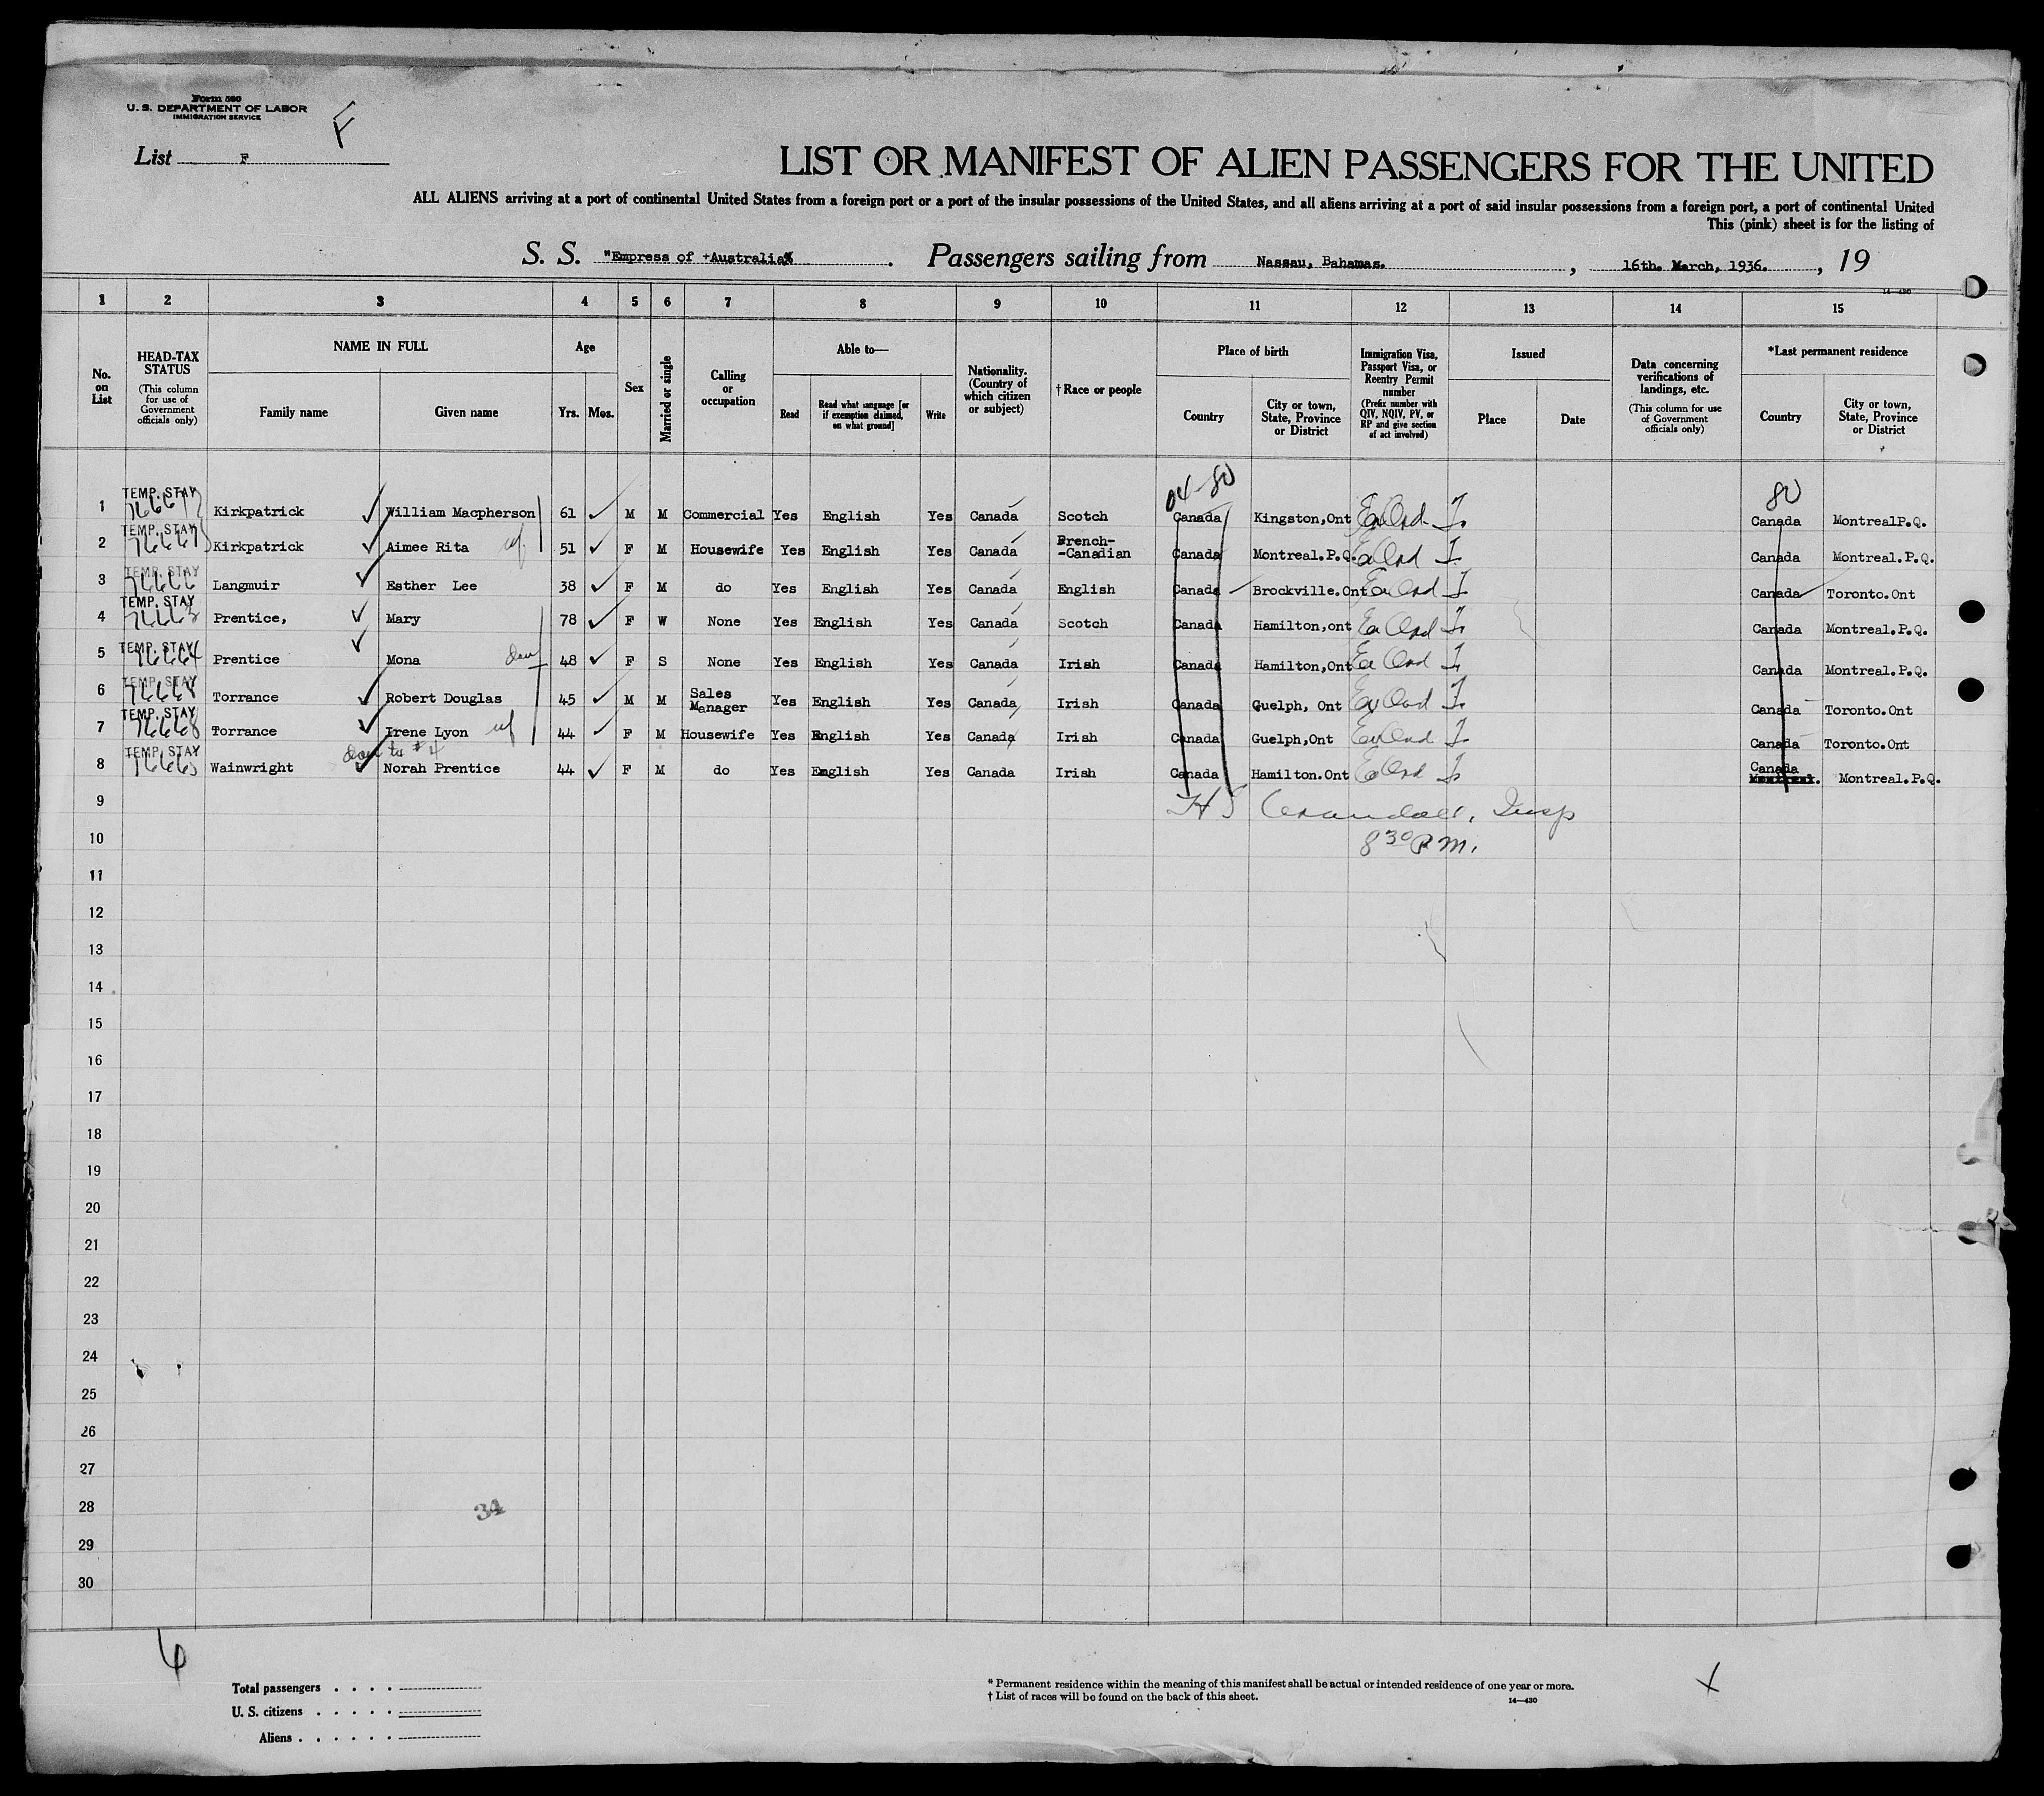 Form 500
U. S. DEPARTMENT OF LABOR
IMMIGRATION SERVICE
F
List F
LIST OR MANIFEST OF ALIEN PASSENGERS FOR THE UNITED
ALL ALIENS arriving at a port of continental United States from a foreign port or a port of the insular possessions of the United States, and all aliens arriving at a port of said insular possessions from a foreign port, a port of continental United
This (pink) sheet is for the listing of
S. S. "Empress of Australia" . Passengers sailing from Nassau, Bahamas. , 16th. March, 1936. , 19
14—430
1 2 3 4 5 6 7 8 9 10 11 12 13 14 15
No. on List
HEAD-TAX STATUS (This column for use of Government officials only)
NAME IN FULL
Family name Given name
Age
Yrs. Mos.
Sex
Married or single
Calling or occupation
Able to—
Read Read what language [or if exemption claimed, on what ground] Write
Nationality. (Country of which citizen or subject)
†Race or people
Place of birth
Country City or town, State, Province or District
Immigration Visa, Passport Visa, or Reentry Permit number (Prefix number with QIV, NQIV, PV, or RP and give section of act involved)
Issued
Place Date
Data concerning verifications of landings, etc. (This column for use of Government officials only)
*Last permanent residence
Country City or town, State, Province or District
04-80 80
1 TEMP. STAY 76667 Kirkpatrick William Macpherson 61 M M Commercial Yes English Yes Canada Scotch Canada Kingston,Ont Canada MontrealP.Q.
2 TEMP. STAY 76667 Kirkpatrick Aimee Rita wf 51 F M Housewife Yes English Yes Canada French--Canadian Canada Montreal.P.Q. Canada Montreal.P.Q.
3 TEMP. STAY 76666 Langmuir Esther Lee 38 F M do Yes English Yes Canada English Canada Brockville.Ont Canada Toronto.Ont
4 TEMP. STAY 76663 Prentice, Mary 78 F W None Yes English Yes Canada Scotch Canada Hamilton,ont Canada Montreal.P.Q.
5 TEMP. STAY 76664 Prentice Mona dau 48 F S None Yes English Yes Canada Irish Canada Hamilton,Ont Canada Montreal.P.Q.
6 TEMP. STAY 76668 Torrance Robert Douglas 45 M M Sales Manager Yes English Yes Canada Irish Canada Guelph, Ont Canada Toronto.Ont
7 TEMP. STAY 76668 Torrance Irene Lyon wf 44 F M Housewife Yes English Yes Canada Irish Canada Guelph,Ont Canada Toronto.Ont
dau to #4
8 TEMP. STAY 76665 Wainwright Norah Prentice 44 F M do Yes English Yes Canada Irish Canada Hamilton.Ont Canada Montreal. Montreal.P.Q.
9 Insp
10 8 30 P.M.
11
12
13
14
15
16
17
18
19
20
21
22
23
24
25
26
27
28
34
29
30
6
Total passengers . . . .
U. S. citizens . . . . .
Aliens . . . . . .
* Permanent residence within the meaning of this manifest shall be actual or intended residence of one year or more.
† List of races will be found on the back of this sheet. 14—430
X